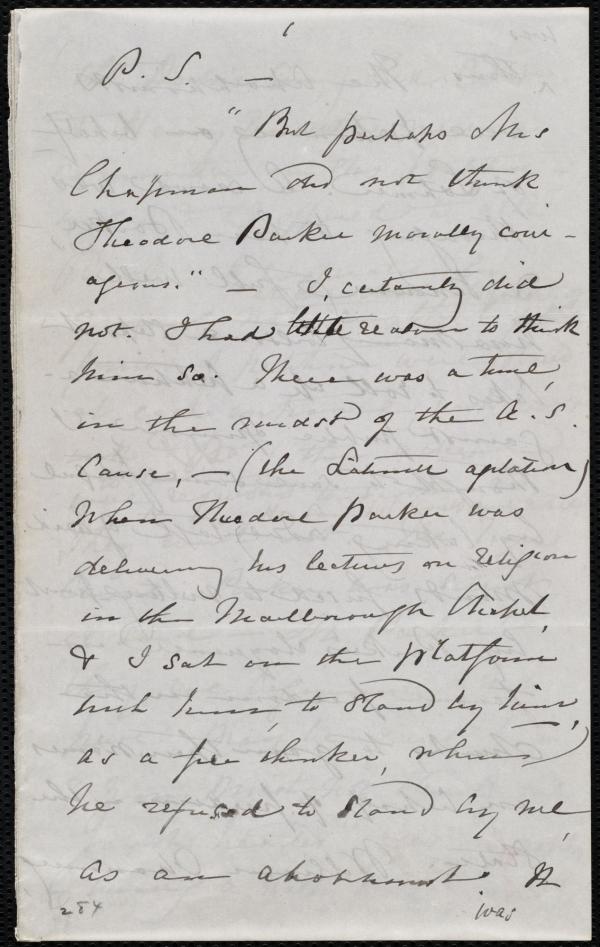 P. S. —
"But perhaps Mrs
Chapman did not think
Theodore Parker morally cour-
ageous." — I, certainly did
not. I had little reason to think
him so. There was a time,
in the midst of the A. S.
Cause, — (the Latimer agitation)
when Theodore Parker was
delivering his lectures on religion
in the Marlborough Chapel,
& I sat on the platform
with him, to stand by him,
as a free thinker, when
he refused to stand by me,
as an abolitionist. It
was
284